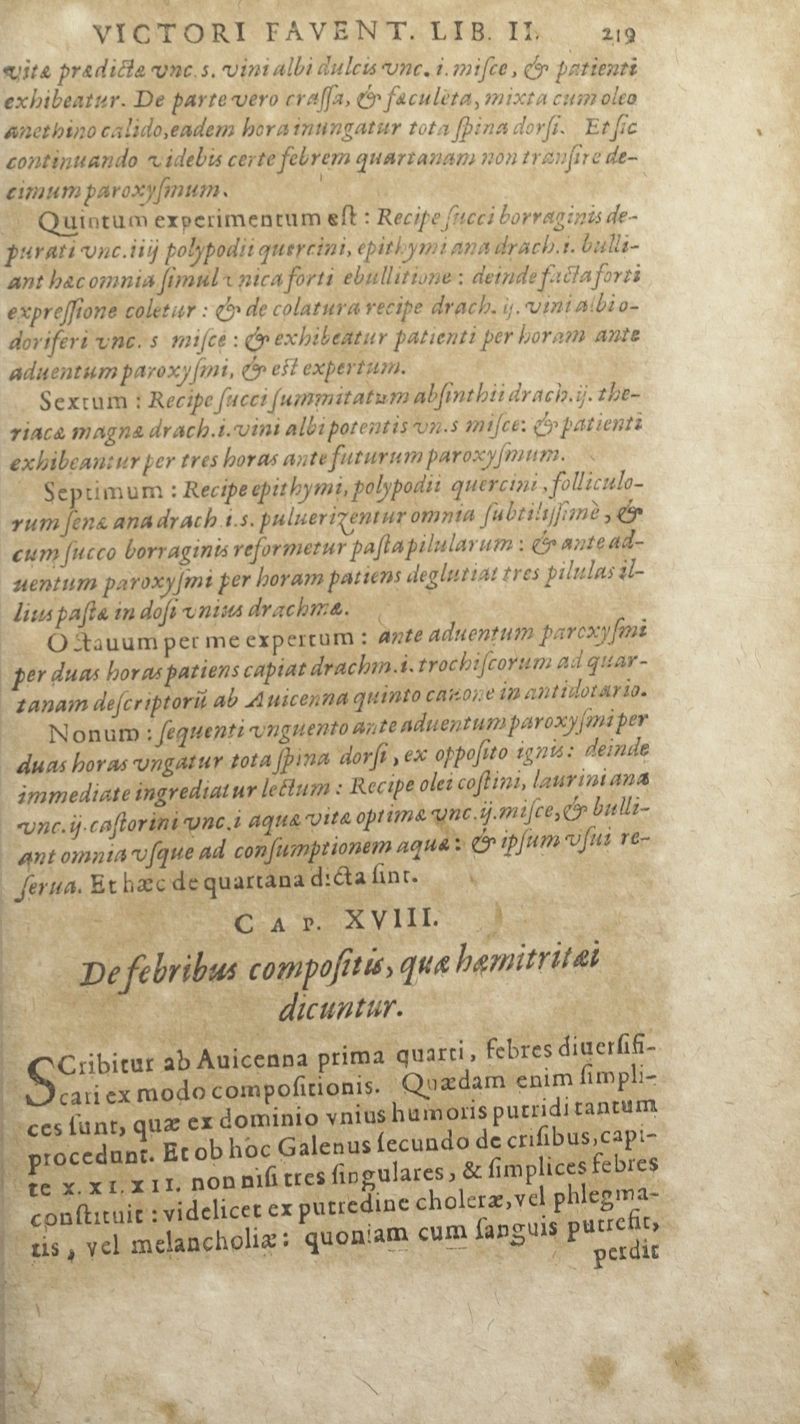 VICTORI FAVENT. LIB. II. 219
vitæ prædictæ vnc. s. vini albi dulcis vnc. i. misce, & patienti
exhibeatur. De parte vero crassa, & fæculéta, mixta cum oleo
anethino calido, eadem hora inungatur tota spina dorsi. Et sic
continuando videbis certe febrem quartanam non transire de-
cimum paroxysmum.
Quintum experimentum est : Recipe succi borraginis de-
purati vnc. iiij polypodii quercini, epithymi ana drach. i. bulli-
ant hæc omnia simul vnica forti ebullitione : deinde facta forti
expressione coletur : & de colatura recipe drach. ij. vini albi o-
doriferi vnc. s misce : & exhibeatur patienti per horam ante
aduentum paroxysmi, & est expertum.
Sextum : Recipe succi summitatum absinthii drach. ij. the-
riacæ magnæ drach. i. vini albi potentis vn. s misce: & patienti
exhibeantur per tres horas ante futurum paroxysmum.
Septimum : Recipe epithymi, polypodii quercini, folliculo-
rum senæ ana drach i. s. puluerizentur omnia subtilissimè, &
cum succo borraginis reformetur pasta pilularum : & ante ad-
uentum paroxysmi per horam patiens deglutiat tres pilulas il-
lius pastæ in dosi vnius drachmæ.
Octauum per me expertum : ante aduentum paroxysmi
per duas horas patiens capiat drachm. i. trochiscorum ad quar-
tanam descriptorū ab Auicenna quinto canone in antidotario.
Nonum : sequenti vnguento ante aduentum paroxysmi per
duas horas vngatur tota spina dorsi, ex opposito ignis: deinde
immediate ingrediatur lectum : Recipe olei costini, laurini ana
vnc. ij. castorini vnc. i aquæ vitæ optimæ vnc. ij. misce, & bulli-
ant omnia vsque ad consumptionem aquæ : & ipsum vsui re-
serua. Et hæc de quartana dicta sint.
CAP. XVIII.
De febribus compositis, quæ hæmitritæi
dicuntur.
SCribitur ab Auicenna prima quarti, febres diuersifi-
cari ex modo compositionis. Quædam enim simpli-
ces sunt, quæ ex dominio vnius humoris putridi tantum
procedunt. Et ob hoc Galenus secundo de crisibus, capi-
te x. xi. xii. non nisi tres singulares, & simplices febres
constituit : videlicet ex putredine choleræ, vel phlegma-
tis, vel melancholiæ : quoniam cum sanguis putrefit,
perdit